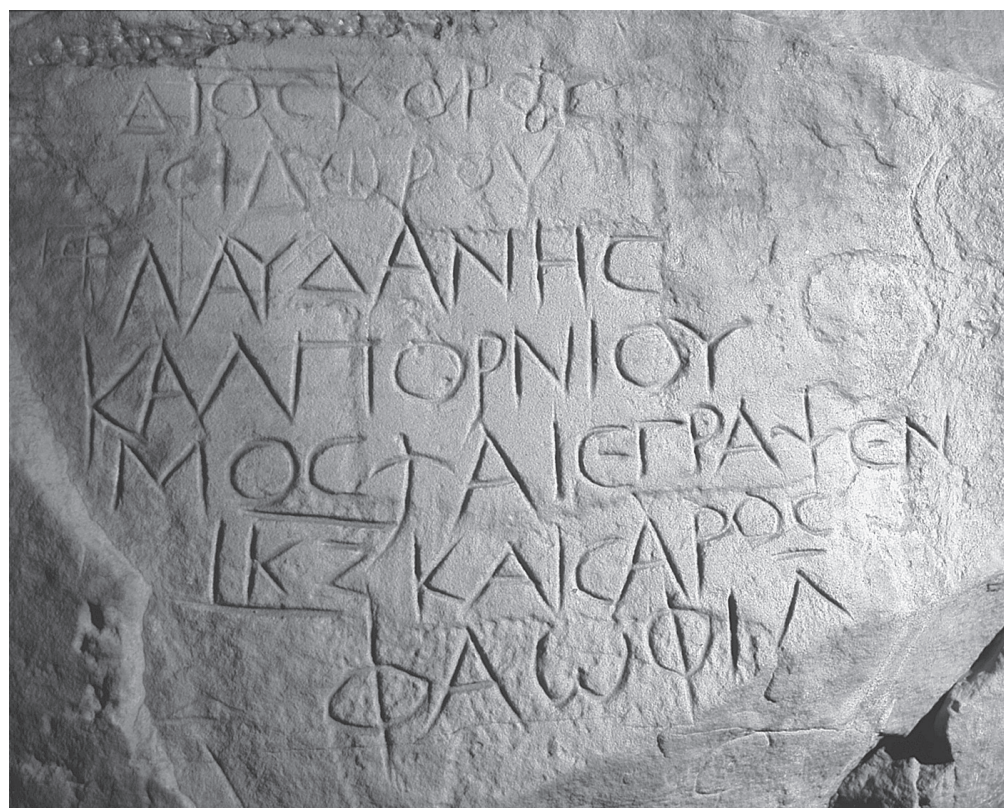 ΔΙΟϹΚΟΡΟϹ
ΙϹΙΔωΡΟΥ
ΛΑΥΔΑΝΗϹ
ΚΑΛΠΟΡΝΙΟΥ
ΕΓΡΑΨΕΝ
LΚΖ ΚΑΙϹΑΡΟϹ
ΦΑωΦΙ Λ